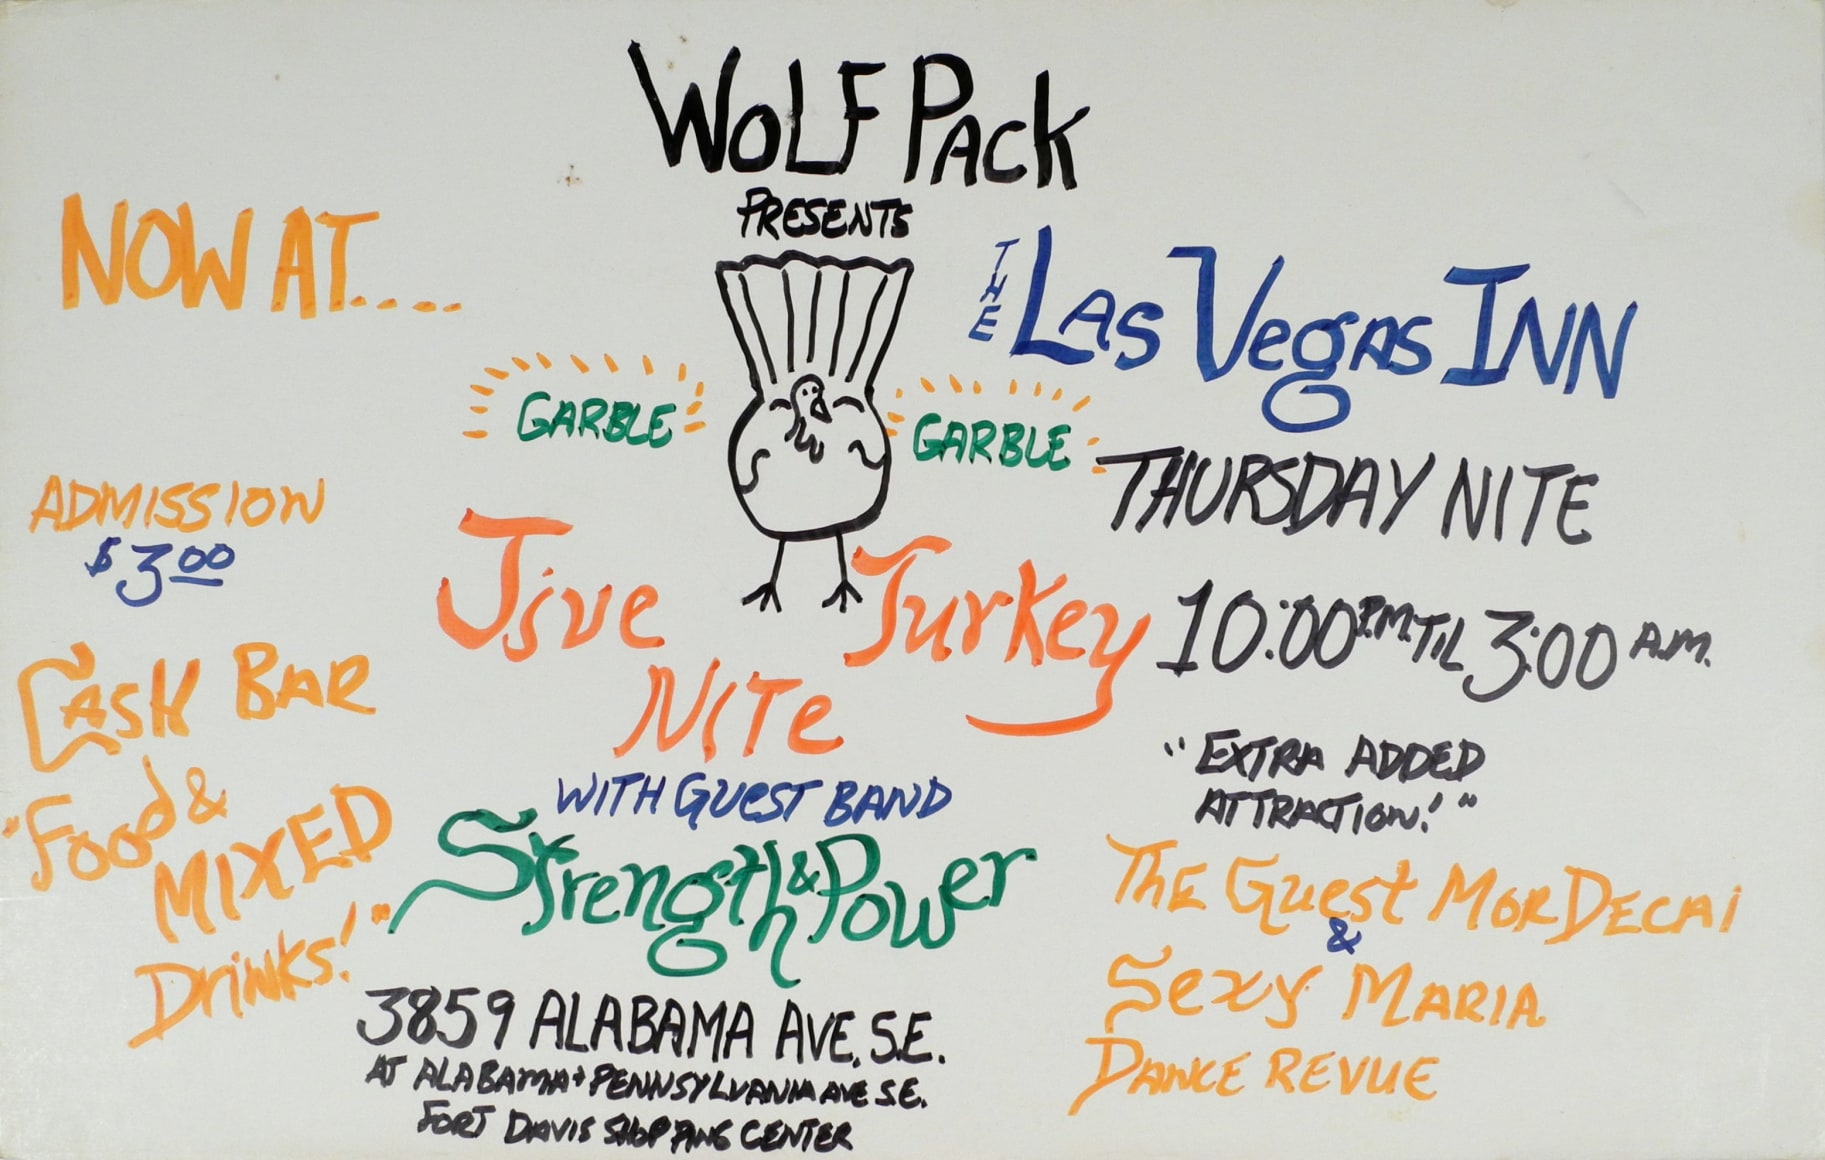 WOLF PACK
PRESENTS
NOW AT.....
THE LAS VEGAS INN
GARBLE GARBLE
THURSDAY NITE
10:00 P.M. TIL 3:00 A.M.
ADMISSION
$3.00
Jive Turkey
NITe
WITH GUEST BAND
Strength & Power
CASH BAR
"Food &
MIXED
Drinks!"
"EXTRA ADDED
ATTRACTION!"
THE Guest MORDECAI
&
Sexy MARIA
DANCE REVUE
3859 ALABAMA AVE. S.E.
AT ALABAMA + PENNSYLVANIA AVE S.E.
FORT DAVIS SHOPPING CENTER